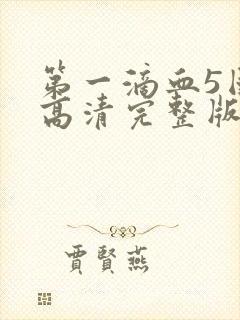 第一滴血5
高清完整版
賈賢燕